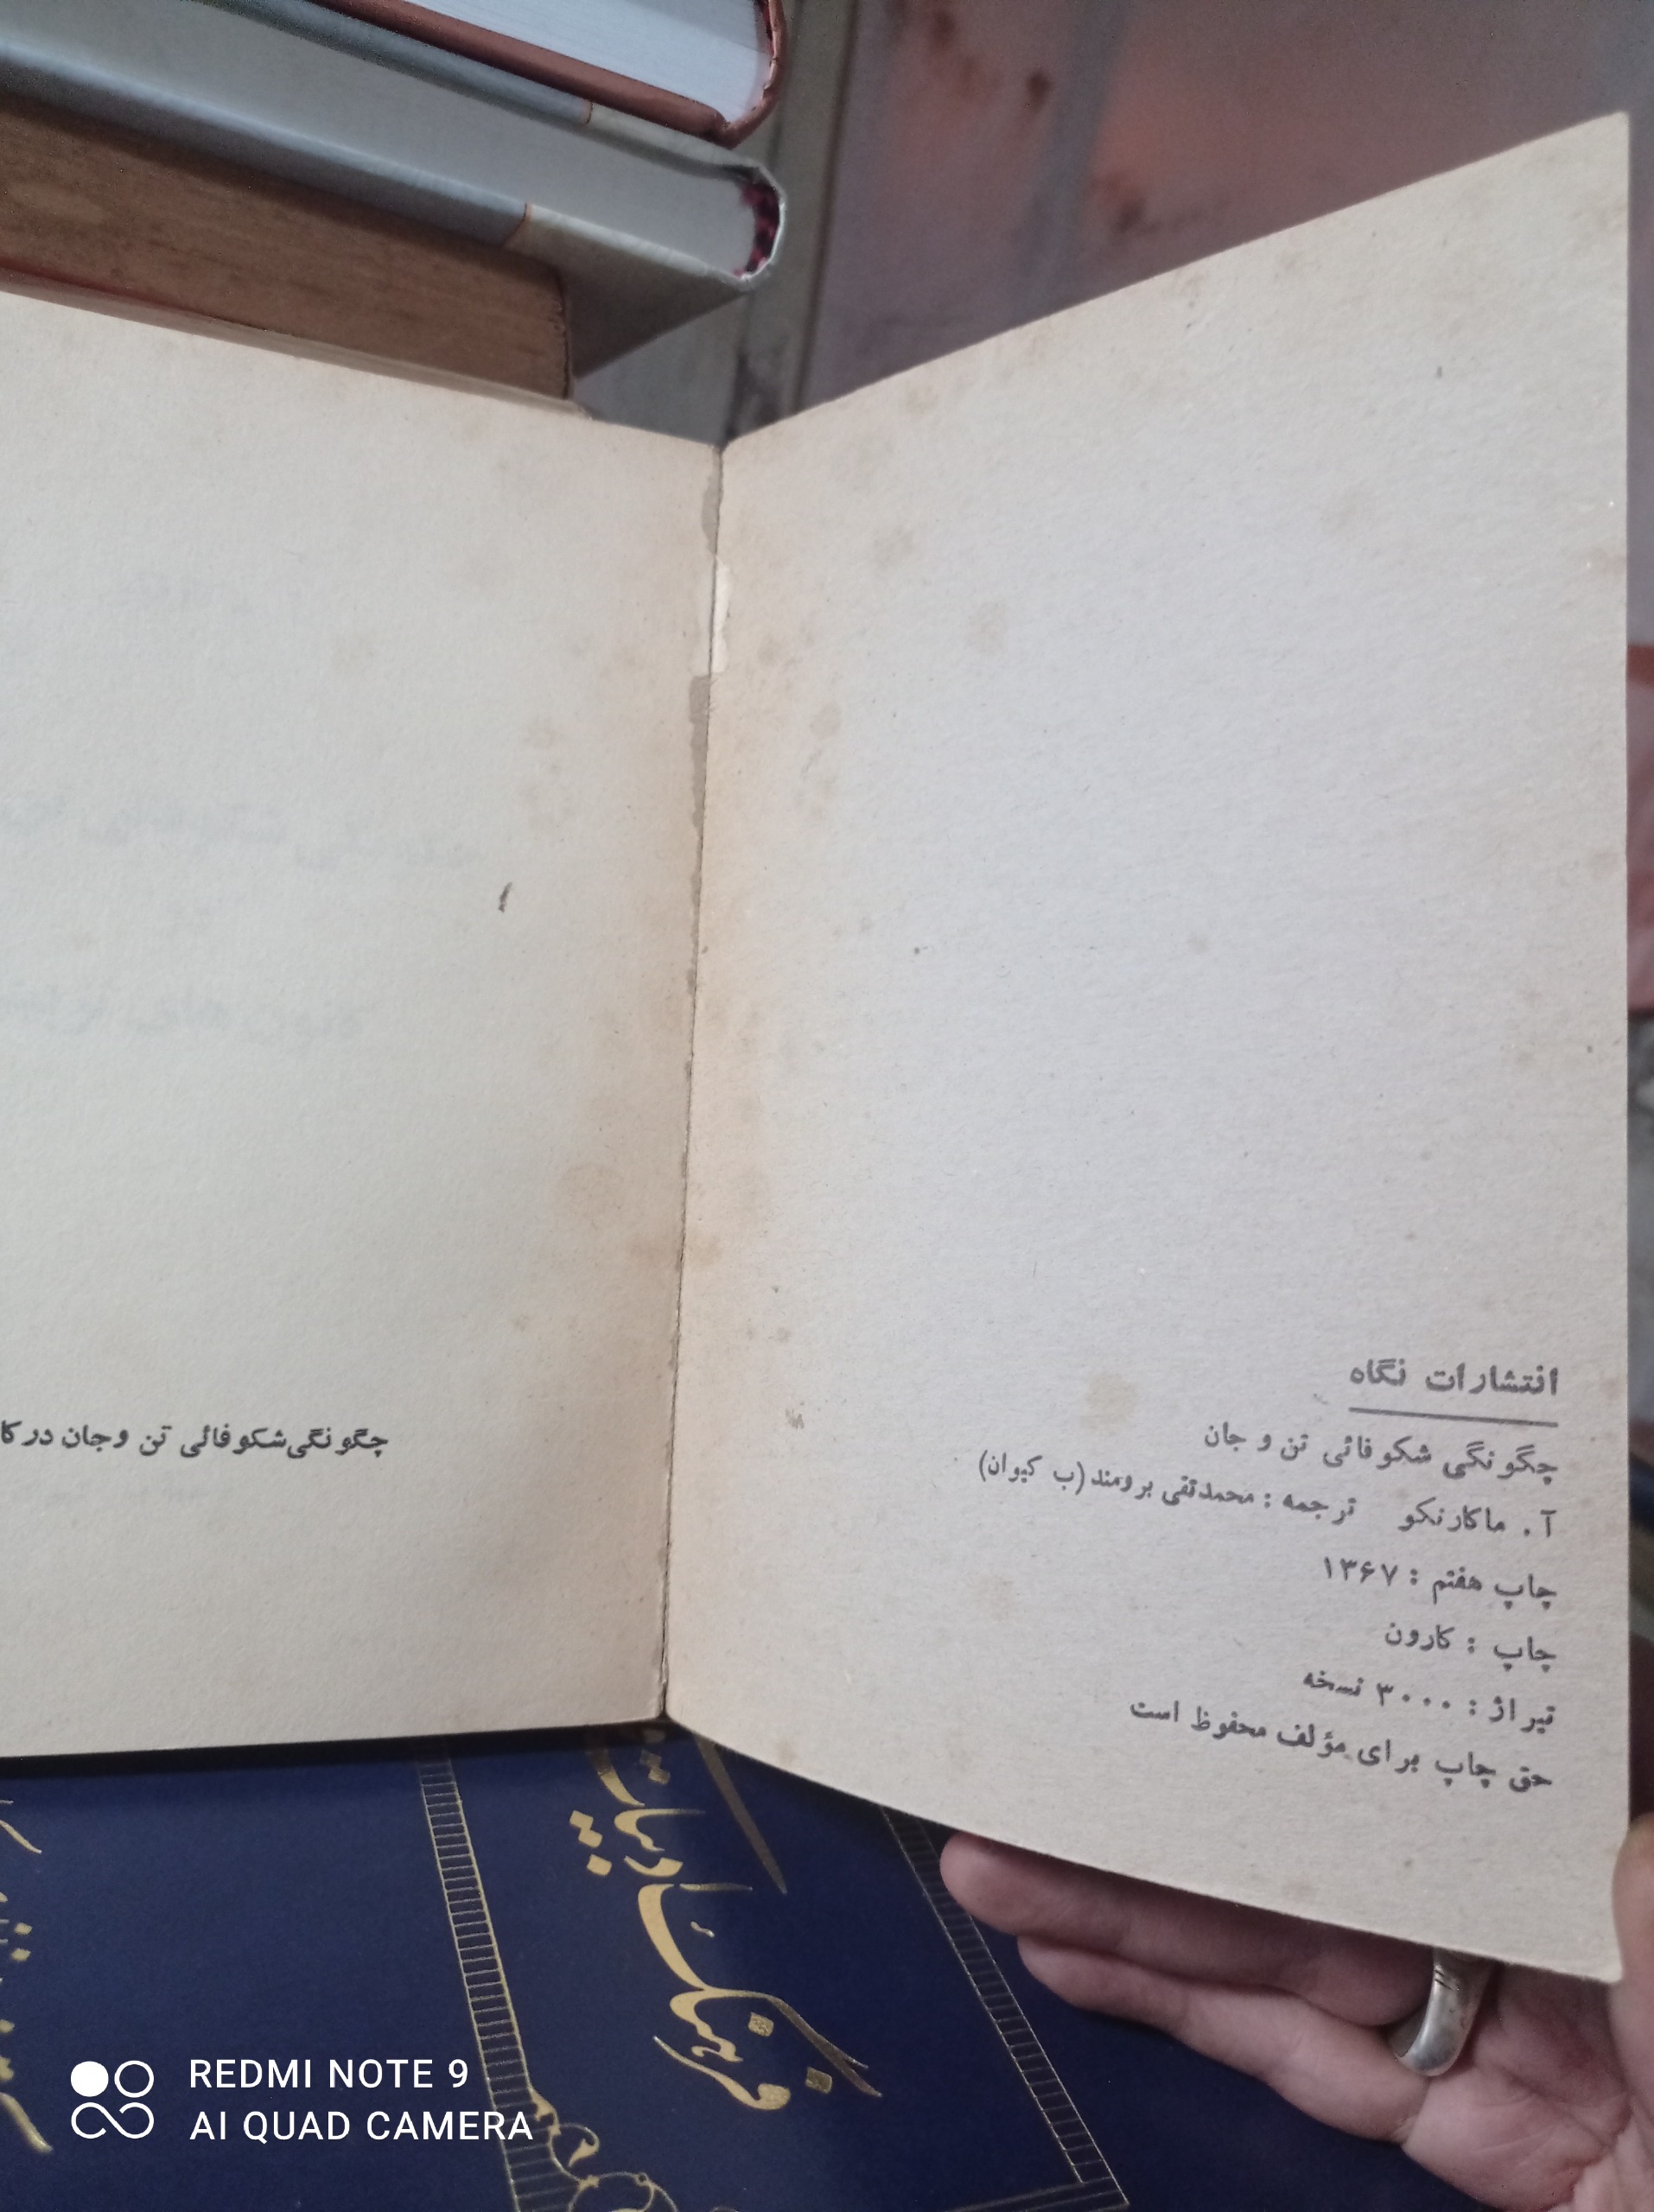 انتشارات نگاه
چگونگی شکوفائی تن و جان
آ. ماکارنکو ترجمه : محمدتقی برومند (ب کیوان)
چاپ هفتم : ۱۳۶۷
چاپ : کارون
تیراژ : ۳۰۰۰ نسخه
حق چاپ برای مؤلف محفوظ است
چگونگی شکوفائی تن وجان در
فرهنگ ادبیات
REDMI NOTE 9
AI QUAD CAMERA